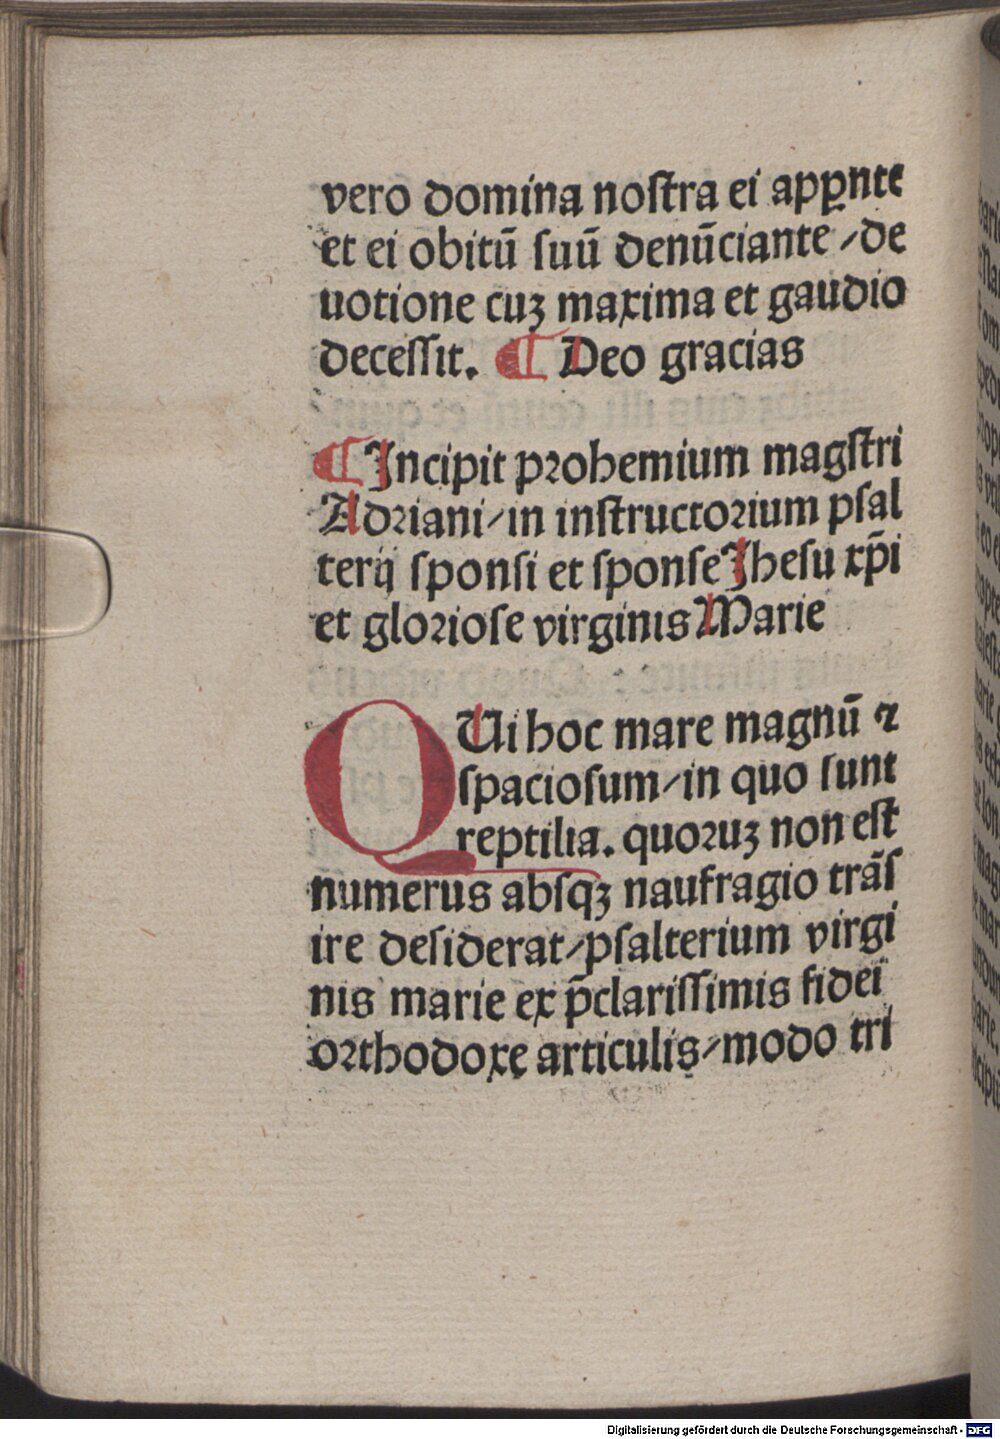 vero domina nostra ei apꝑnte
et ei obitū suū denūciante / de
uotione cuꝫ maxima et gaudio
decessit. ¶ Deo gracias
¶ Incipit prohemium magstri
Adriani / in instructorium psal
terij sponsi et sponse Jhesu xp̄i
et gloriose virginis Marie
QUi hoc mare magnū ⁊
spaciosum / in quo sunt
reptilia. quoruꝫ non est
numerus absqꝫ naufragio trās
ire desiderat / psalterium virgi
nis marie ex p̄clarissimis fidei
orthodoxe articulis / modo tri
Digitalisierung gefördert durch die Deutsche Forschungsgemeinschaft - DFG